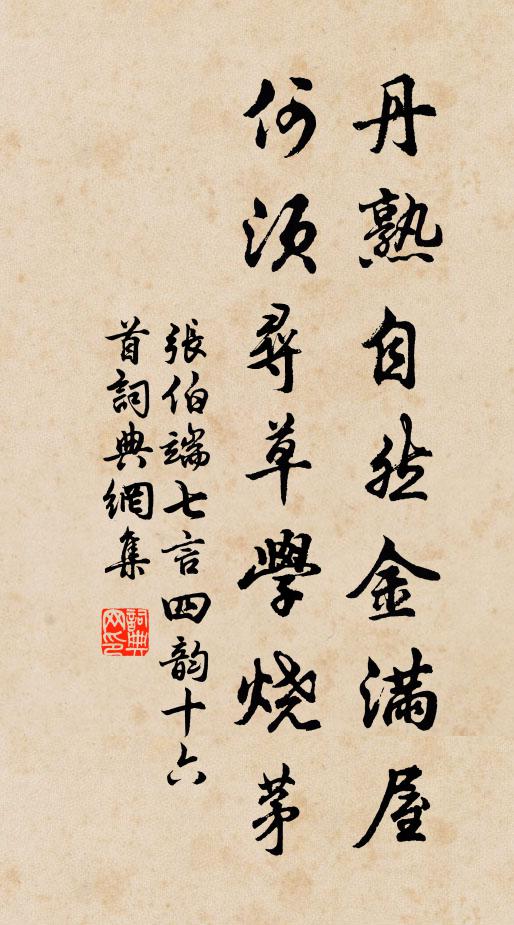 丹熟自然金滿屋
何須尋草學燒茅
張伯端七言四韵十六
首詞典網集
詞典网印